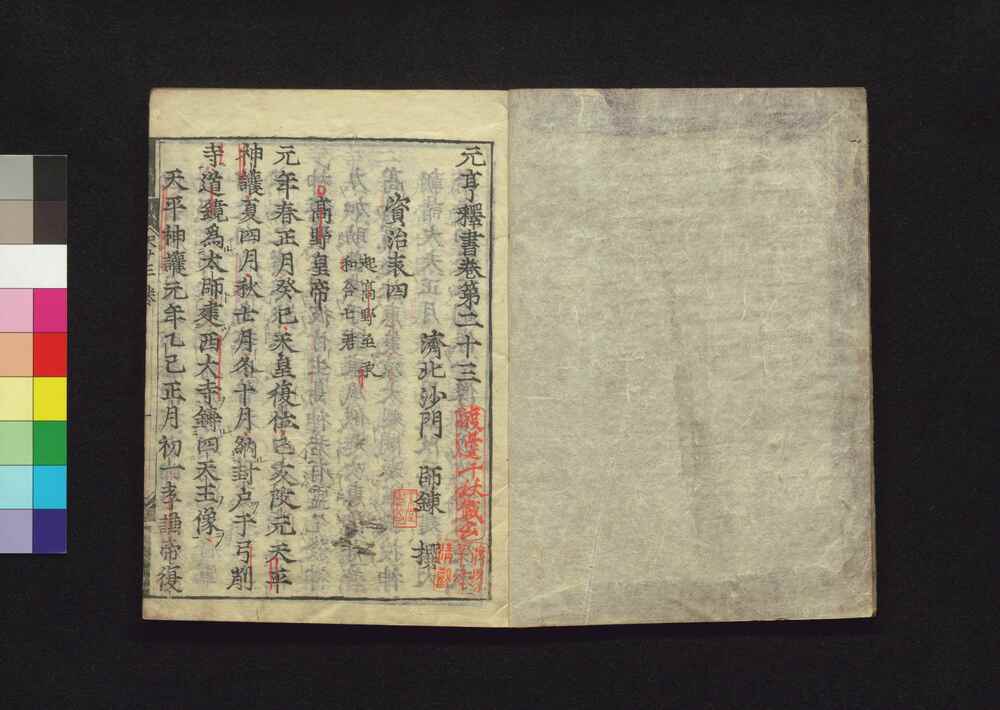 元亨釋書卷第二十三
濟北沙門 師錬 撰
資治表四
起高野至承
和合七君
高野皇帝
元年春正月癸巳天皇復位乙亥改元天平
神護夏四月秋七月冬十月納封戸于弓削
寺道鏡爲太師建西大寺鑄四天王像
天平神護元年乙巳正月初一孝謙帝復
渡邊千秋藏書